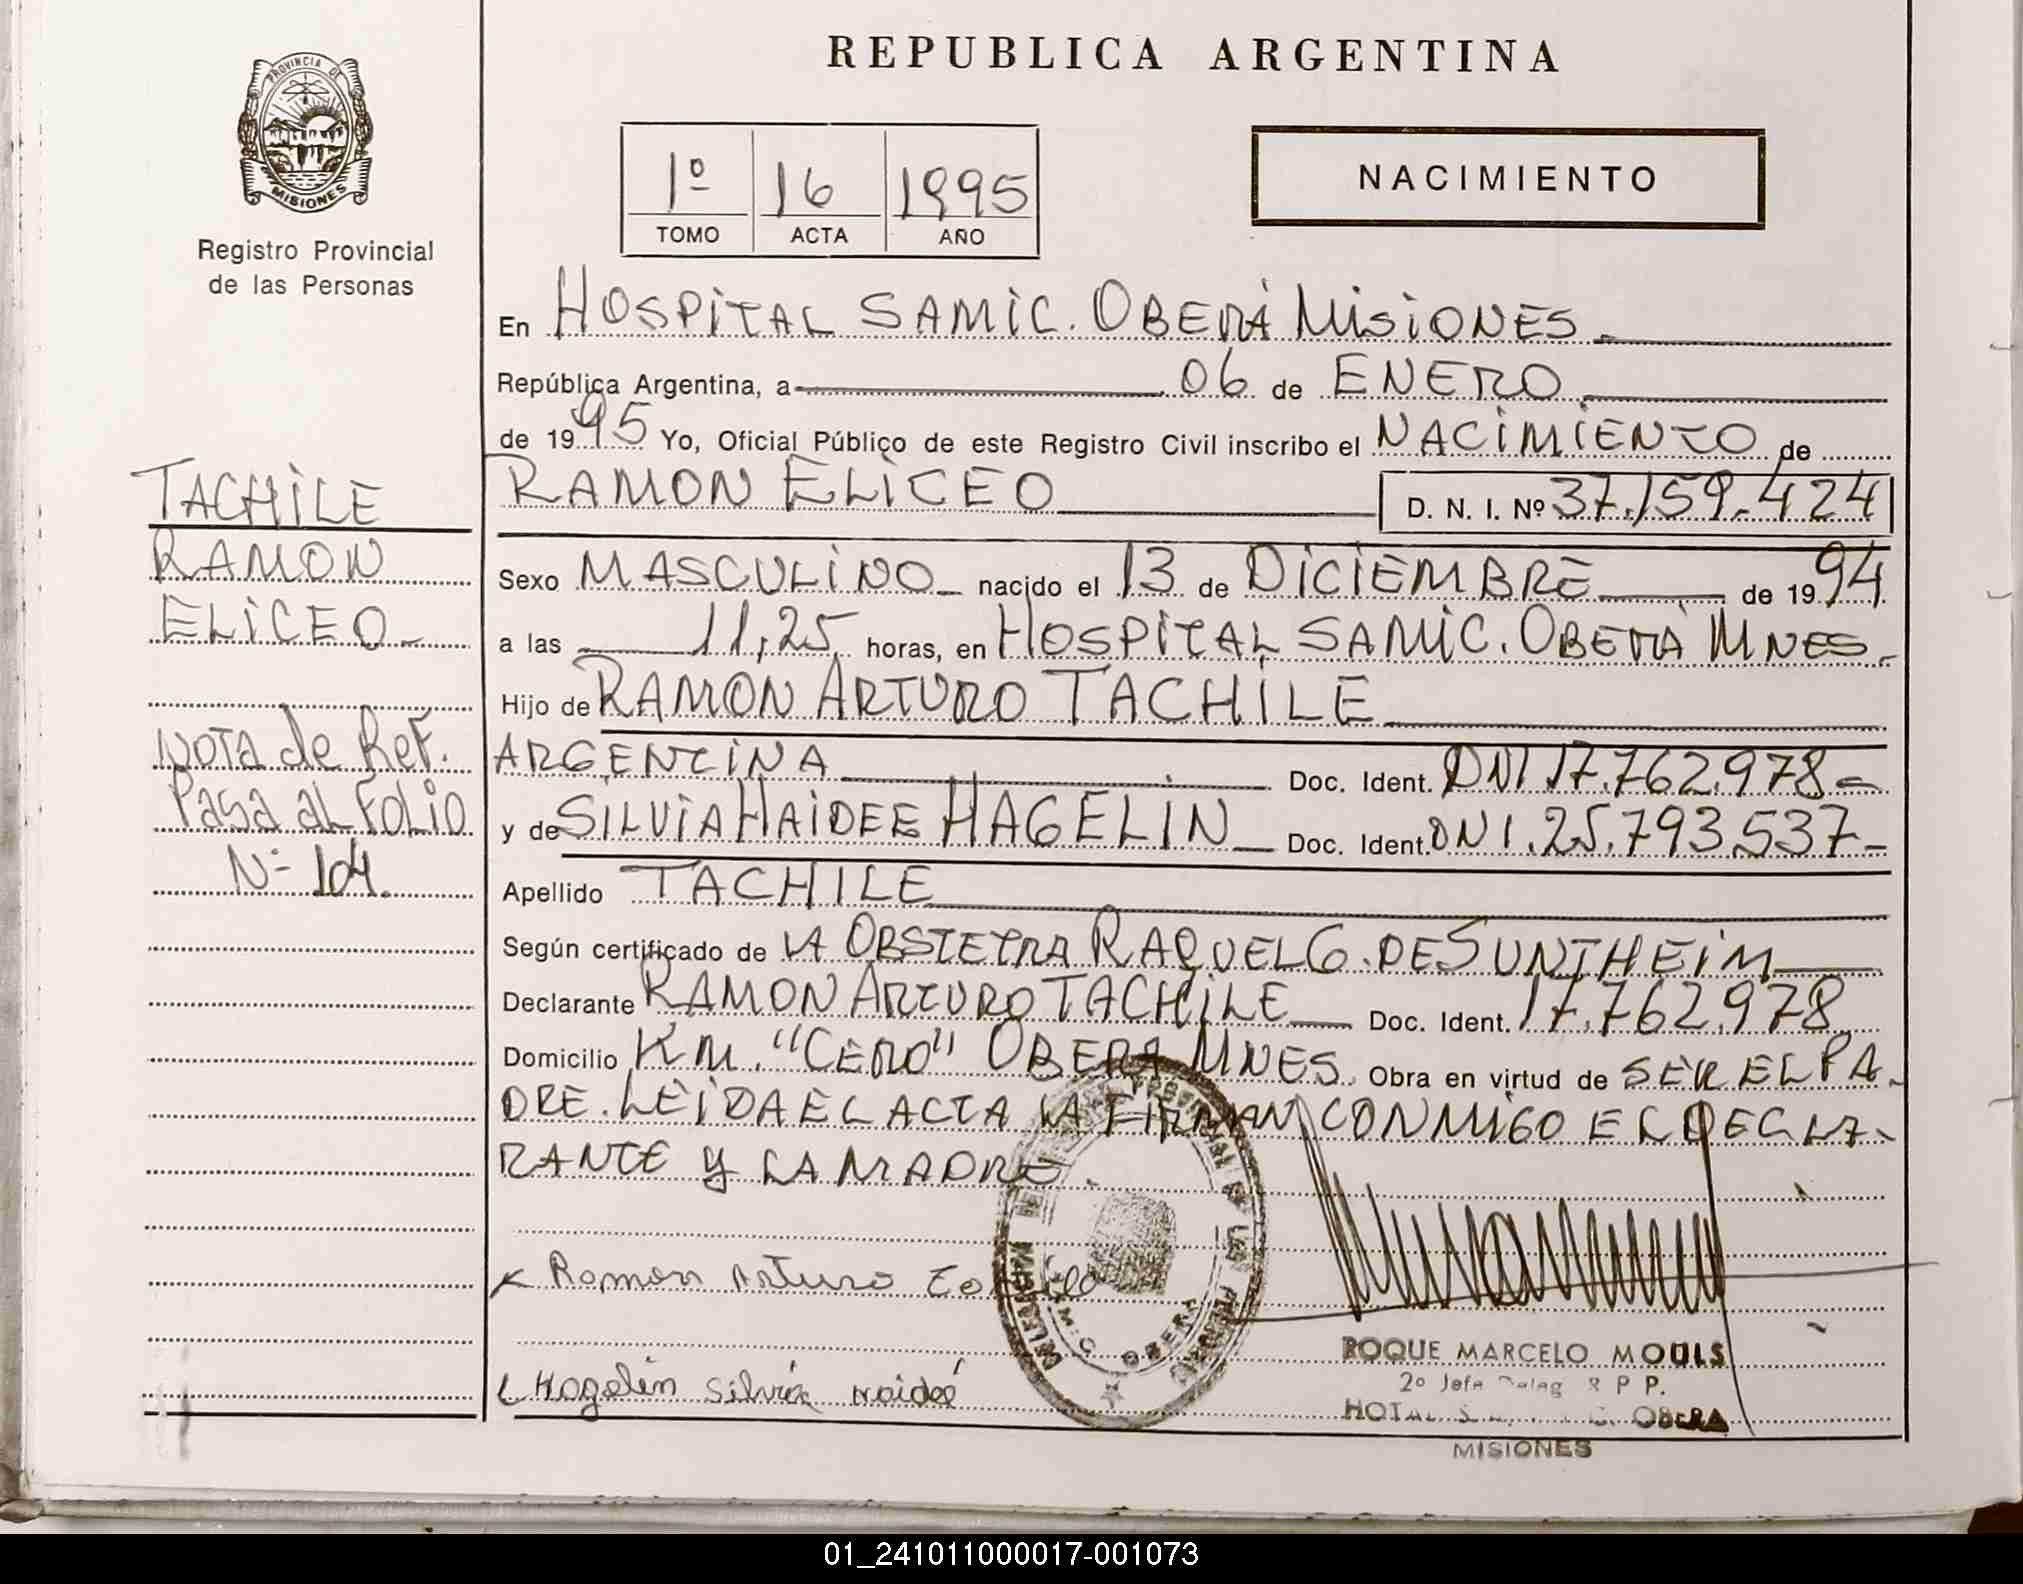 REPUBLICA ARGENTINA
PROVINCIA DE
MISIONES
Registro Provincial
de las Personas
1º 16 1995
TOMO ACTA AÑO
NACIMIENTO
En HOSPITAL SAMIC. OBERÁ MISIONES
República Argentina, a 06 de ENERO
de 1995 Yo, Oficial Público de este Registro Civil inscribo el NACIMIENTO de
RAMON ELICEO D. N. I. Nº 37.159.424
Sexo MASCULINO nacido el 13 de DICIEMBRE de 1994
a las 11,25 horas, en HOSPITAL SAMIC. OBERÁ MNES.
Hijo de RAMON ARTURO TACHILE
ARGENTINA Doc. Ident. DNI 17.762.978
y de SILVIA HAIDEE HAGELIN Doc. Ident. DNI. 25.793.537
Apellido TACHILE
Según certificado de LA OBSTETRA RAQUEL G. DE SUNTHEIM
Declarante RAMON ARTURO TACHILE Doc. Ident. 17.762.978
Domicilio KM. "CERO" OBERA MNES. Obra en virtud de SER EL PA-
DRE. LEIDA EL ACTA LA FIRMAN CONMIGO EL DECLA-
RANTE Y LA MADRE.
Ramon Arturo
Hagelin Silvia Haideé
ROQUE MARCELO MOULS
2º Jefe Deleg. R P P.
OBERA
MISIONES
TACHILE
RAMON
ELICEO
NOTA de Ref.
Pasa al FOLIO
Nº 104.
01_241011000017-001073